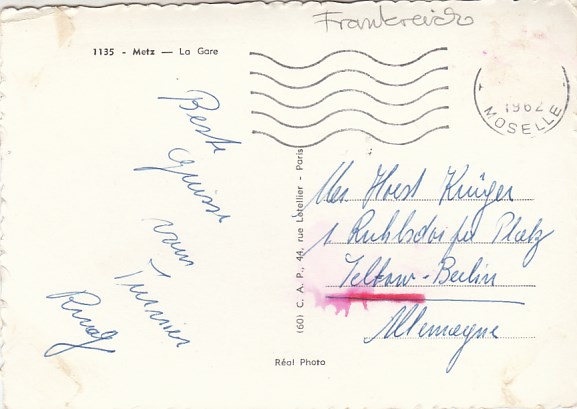 Frankreich
1135 - Metz — La Gare
1962
MOSELLE
Beste
Grüsse
vom
Turnier
(60) C. A. P., 44, rue Letellier - Paris
Horst Krüger
1 Ruhlsdorfer Platz
Teltow-Berlin
Allemagne
Réal Photo